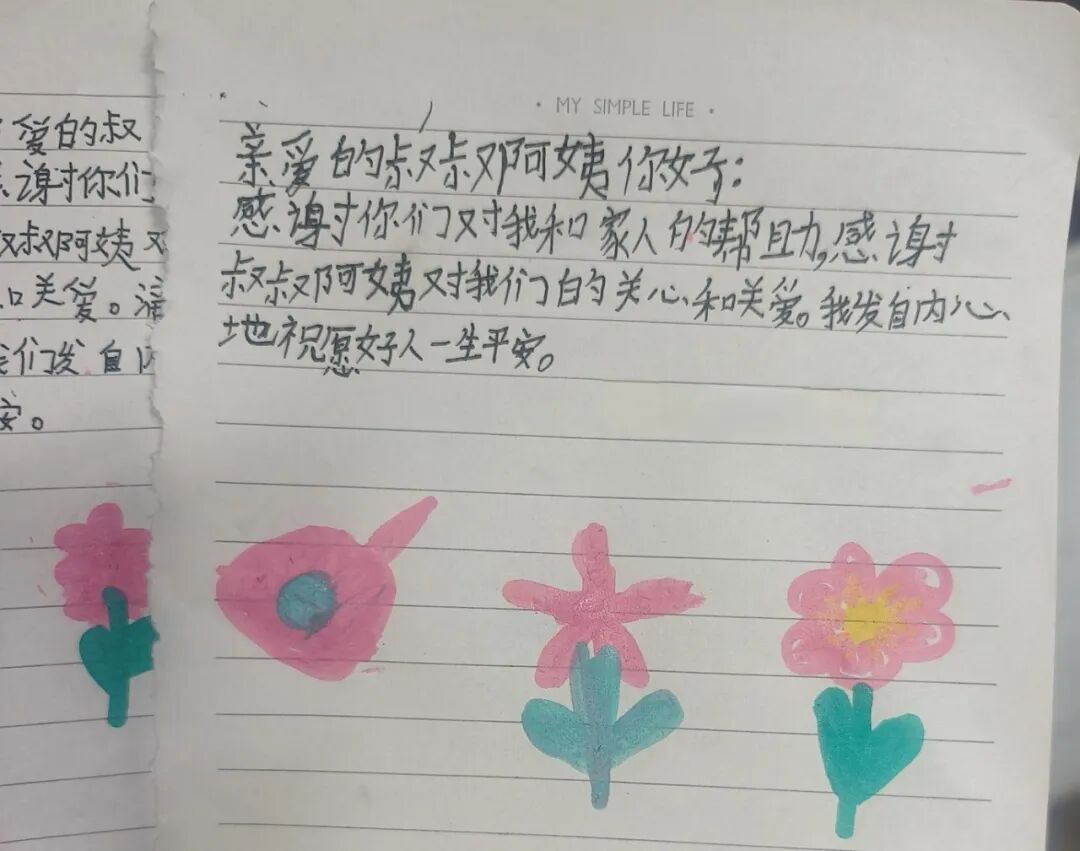 MY SIMPLE LIFE
亲爱的叔叔阿姨你好：
感谢你们对我和家人的帮助，感谢
叔叔阿姨对我们的关心和关爱。我发自内心
地祝愿好人一生平安。
爱的叔
谢你们
叔阿姨
关爱。
们发自
安。